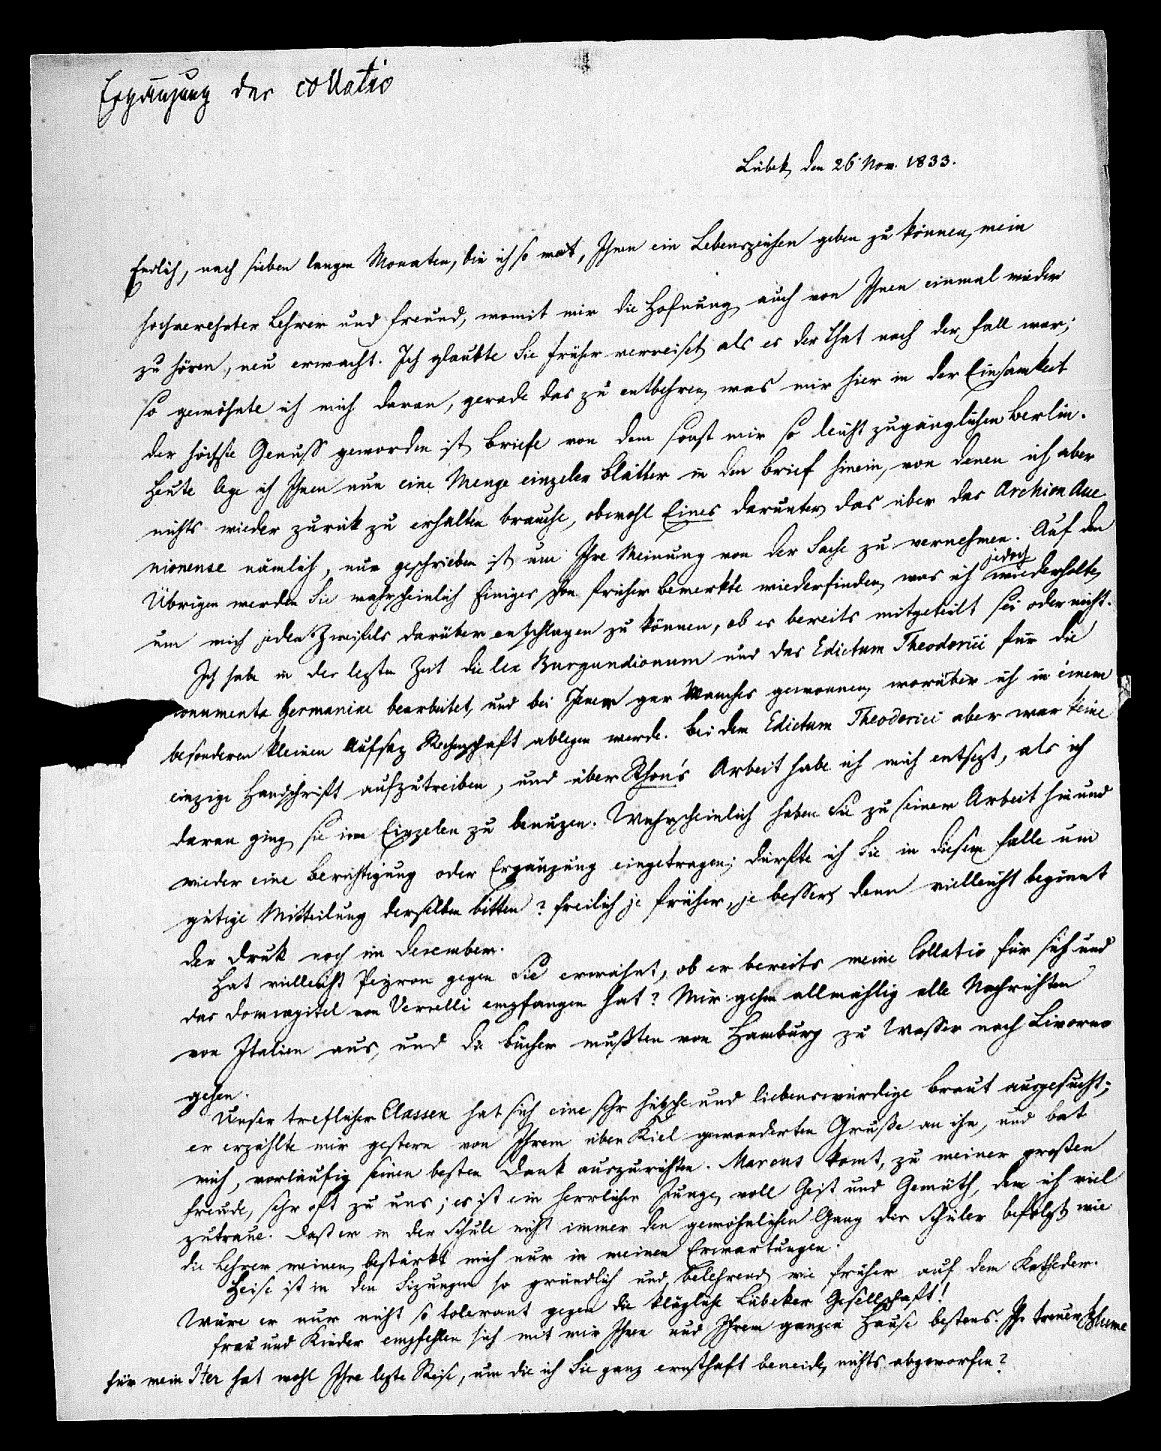 Ergänzung der collatio
Lübek, den 26 Nov. 1833.
Endlich, nach sieben langen Monaten, bin ich so weit, Ihnen ein Lebenszeichen geben zu können, mein
hochverehrter Lehrer und Freund, womit mir die Hofnung, auch von Ihnen einmal wieder
zu hören, neu erwacht. Ich glaubte Sie früher verreiset, als es der That nach der Fall war;
so gewöhnte ich mich daran, gerade das zu entbehren, was mir hier in der Einsamkeit
der höchste Genuss geworden ist, Briefe von dem sonst mir so leicht zugänglichen Berlin.
Heute lege ich Ihnen nun eine Menge einzeler Blätter in den Brief hinein, von denen ich aber
nichts wieder zurük zu erhalten brauche, obwohl Eines darunter, das über das Archiom Aue
nionense nämlich, nur geschrieben ist um Ihre Meinung von der Sache zu vernehmen. Auf den
Übrigen werden Sie wahrscheinlich Einiges schon früher bemerkte wiederfinden, was ich jedoch wiederholte,
um mich jedes Zweifels darüber entschlagen zu können, ob es bereits mitgeteilt sei oder nicht.
Ich habe in der lezten Zeit die lex Burgundionum und das Edictum Theodorici für die
onumenta Germaniae bearbeitet, und bei Jener gar Manches gewonnen, worüber ich in einem
besonderen kleinen Aufsaz Rechenschaft ablegen werde. Bei dem Edictum Theoderici aber war keine
einzige Handschrift aufzutreiben, und über Rhon's Arbeit habe ich mich entsezt, als ich
daran ging, sie im Einzelen zu benuzen. Wahrscheinlich haben Sie zu seiner Arbeit hin und
wieder eine Berichtigung oder Ergänzung eingetragen; dürfte ich Sie in diesem Falle um
gütige Mitteilung derselben bitten? Freilich je früher, je besser, denn vielleicht beginnt
der Druk noch im December.
Hat vielleicht Peyron gegen Sie erwähnt, ob er bereits meine Collatio für sich und
das Domcapitel von Vercelli empfangen hat? Mir gehen allmählig alle Nachrichten
von Italien aus, und die Bücher mußten von Hamburg zu Wasser nach Livorno
gehen.
Unser treflicher Classen hat sich eine sehr hübsche und liebenswürdige Braut ausgesucht;
er erzählte mir gestern von Ihrem über Kiel gewanderten Gruße an ihn, und bat
mich, vorläufig seinen besten Dank auszurichten. Marcus komt, zu meiner großen
Freude, sehr oft zu uns; es ist ein herrlicher Junge, voll Geist und Gemüth, dem ich viel
zutraue. Daß er in der Schule nicht immer den gewöhnlichen Gang der Schüler befolgt, wie
die Lehrer meinen, bestärkt mich nur in meinen Erwartungen.
Heise ist in den Sizungen so gründlich und belehrend, wie früher auf dem Katheder.
Wäre er nur nicht so tolerant gegen die klägliche Lübeker Gesellschaft!
Frau und Kinder empfehlen sich mit mir Ihnen und Ihrem ganzen Hause bestens. Ihr treuer Blume
Für mein Iter hat wohl Ihre lezte Reise, um die ich Sie ganz ernsthaft beneide, nichts abgeworfen?